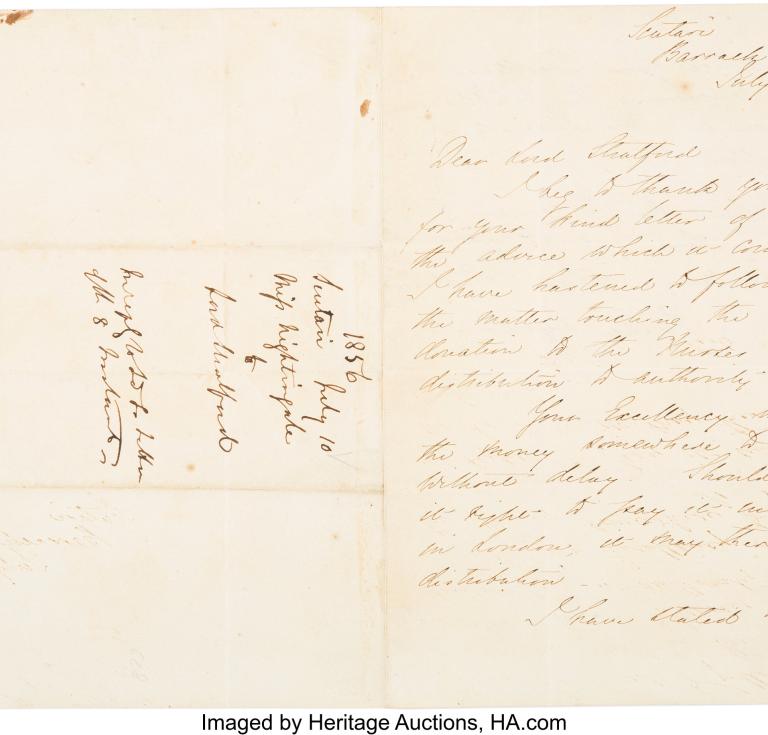 1856
Scutari July 10
Miss Nightingale
to
Lord Stratford
In reply to Ld S's letter
of the 8 Instant
Scutari
Barrack
July
Dear Lord Stratford
I beg to thank yo
for your kind letter of
the advice which it con
I have hastened to follow
the matter touching the
donation to the Nurses
distribution to authority
Your Excellency
the money somewhere to
without delay. Should
it right to pay it in
in London, it may ther
distribution
I have stated
Imaged by Heritage Auctions, HA.com